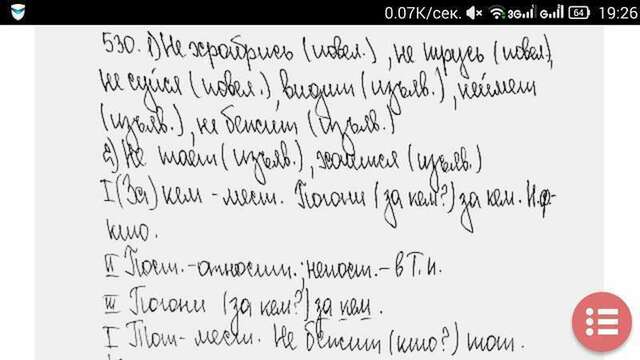 0.07K/сек. 3G G 64 19:26
530. 1) Не храбрись (повел.), не трусь (повел.),
не суйся (повел.), видит (изъяв.), неймет
(изъяв.), не бежит (изъяв.)
2) Не таем (изъяв.), жаться (изъяв.)
I (За) кем - мест. Погони (за кем?) за кем. Н.ф-
кто.
II Пост. - относит.; непост. - в Т.п.
III Погони (за кем?) за кем.
I Тот - мест. Не бежит (кто?) тот.